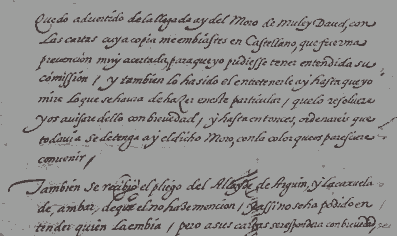 Quedo advertido de la llegada ay del Moro de Muley Daud, con
las cartas cuya copia me embiastes en Castellano, que fue muy
prevencion muy acertada, para que yo pudiesse tener entendida su
comission / y tambien lo ha sido el entretenerle ay hasta que yo
mire lo que se havra de hazer en este particular / que lo resolvere
y os avisare dello con brevedad, y hasta entonces, ordenareis que
todavia se detenga ay el dicho Moro, con la color que os paresciere
convenir /
Tambien se recibio el pliego del Alcayde de Arguin, y la caxuela
de, ambar, de que el no haze mencion / y assi no se ha podido en
tender quien la embia / pero a sus cartas se respondera con brevedad